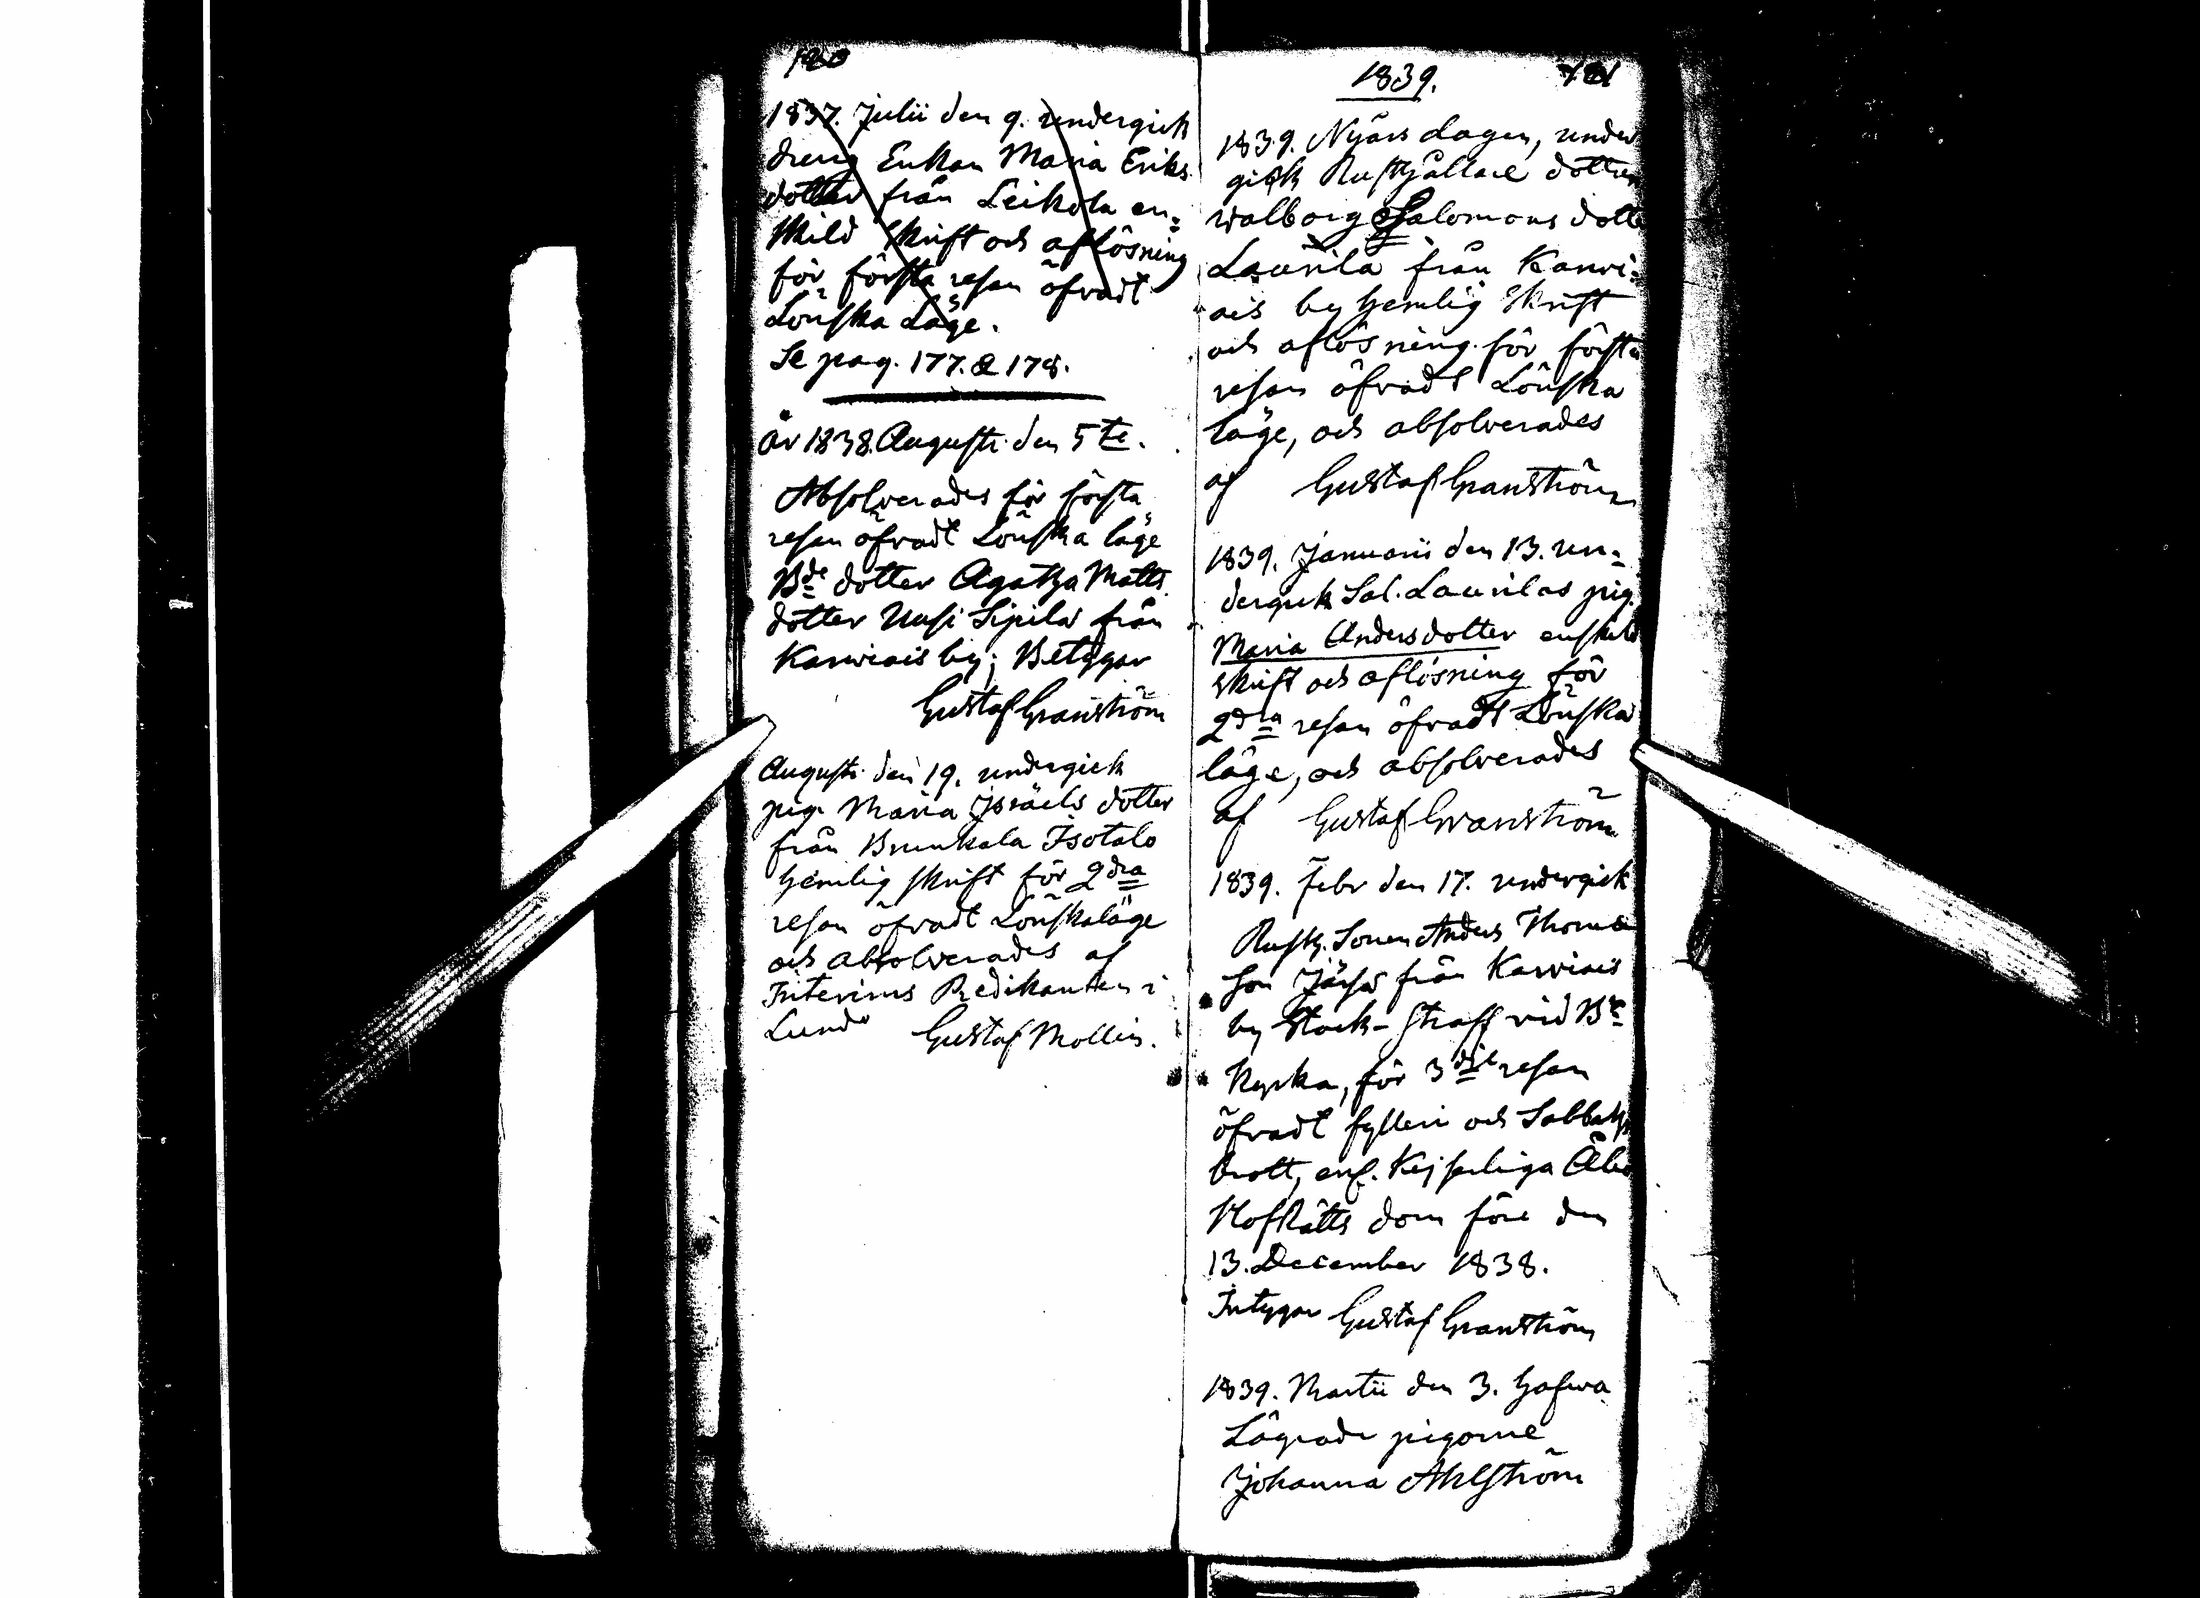 180
1837. Julii den 9. undergick
dreng Enkan Maria Eriks
dotter från Leikola en-
skild skrift och aflösning
för första resan öfvadt
Lönska Läge.
Se pag. 177. & 178.
År 1838. Augusti den 5te.
Absolverades för första
resan öfvadt Lönska läge
Bde dotter Agatha Matts
dotter Uusi Sipilä från
Karviais by; Betygar
Gustaf Granström
Augusti den 19. undergick
pig. Maria Israels dotter
från Brunkala Isotalo
hemlig skrift för 2dra
resan öfvadt Lönskaläge
och absolverades af
Interims Predikanten i
Lundo Gustaf Mollin.
1839. 181
1839. Nyårs dagen, under
gick Rusthållare dottren
Walborg Salomons dotte
Laurila från Karvi-
ais by hemlig skrift
och aflösning för första
resan öfvadt Lönska
läge, och absolverades
af Gustaf Granström
1839. Januarii den 13. un-
dergick Sal. Laurilas pig.
Maria Andersdotter enskild
skrift och aflösning för
2dra resan öfvadt Lönska
läge, och absolverades
af Gustaf Granström
1839. Febr den 17. undergick
Rusth. Sonen Anders Thomas
son from Karviais
by Stock-straff vid
Kyrka, för 3dje resan
öfvadt fylleri och Sabbaths
brott, enl. Kejserliga Åbo
HofRätts dom före den
13. December 1838.
Intygar Gustaf Granström
1839. Martii den 3. hafva
Lägrade pigorne
Johanna Ahlström